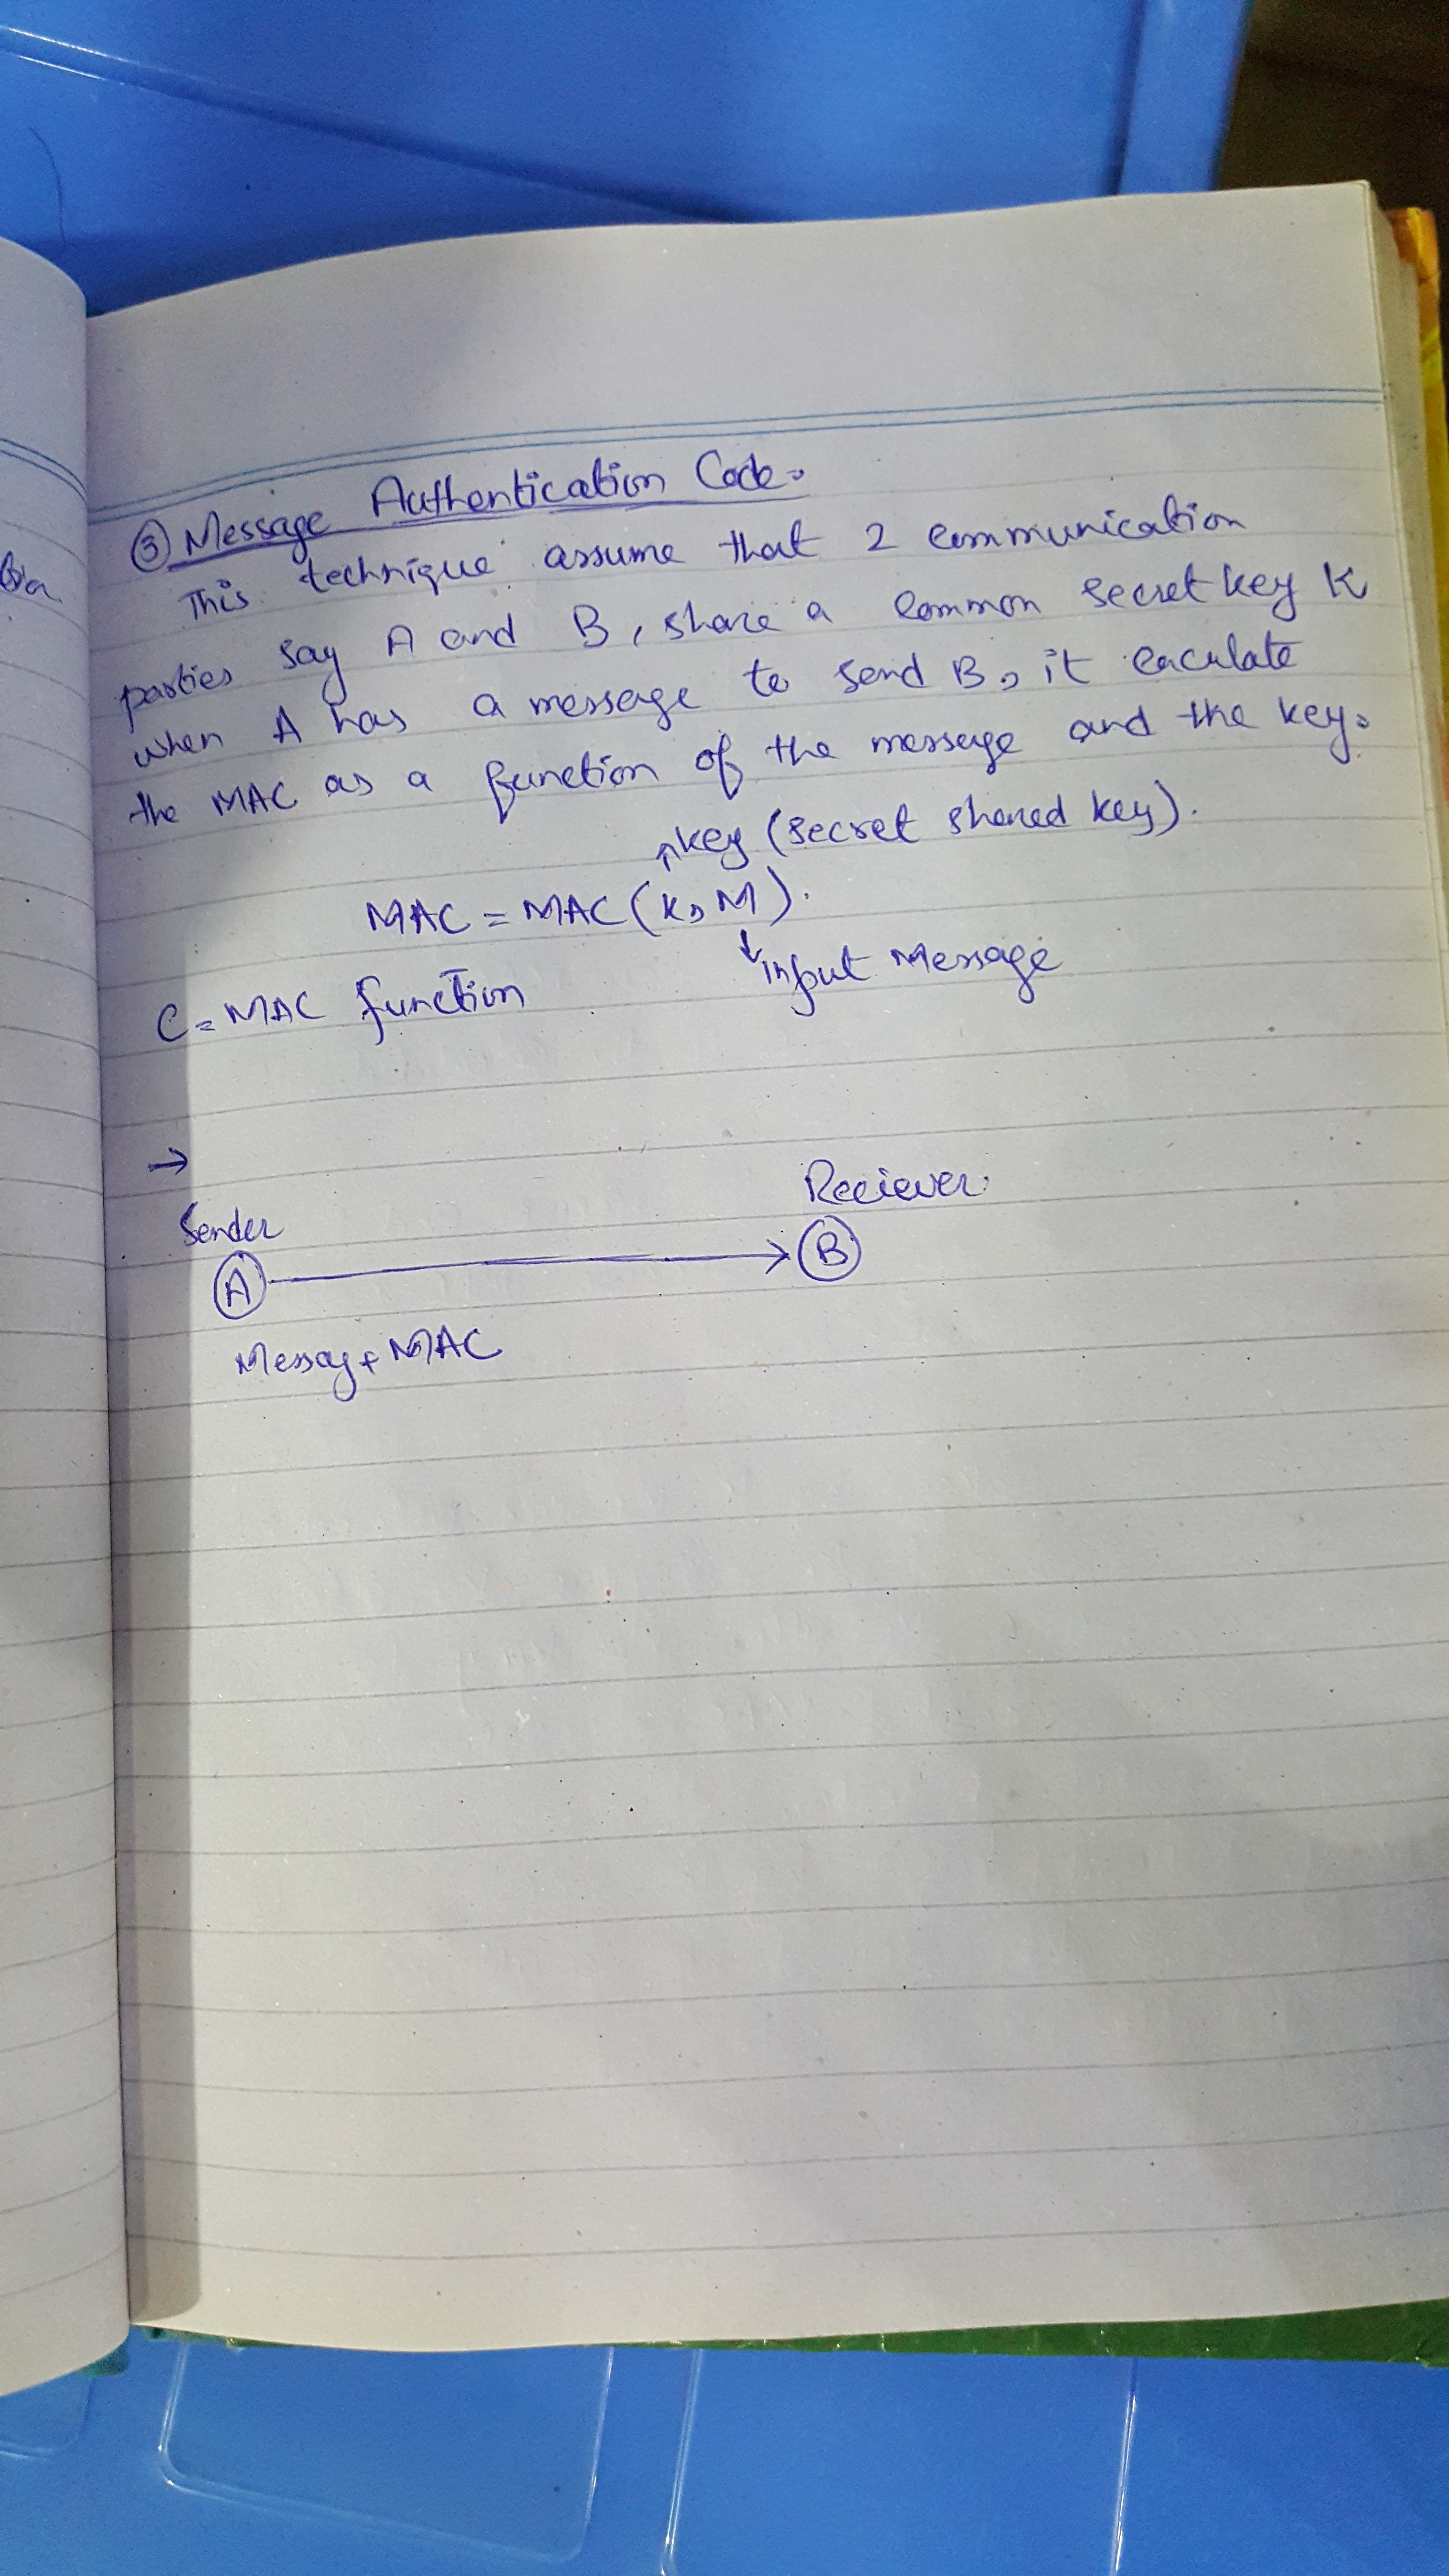 ③ Message Authentication Code.
This technique assume that 2 communication
parties say A and B, share a common secret key K
when A has a message to send B, it caculate
the MAC as a function of the message and the key.
key (secret shared key).
MAC = MAC (K, M).
input Message
C = MAC function
→
Reciever.
Sender
A → B
Messag + MAC